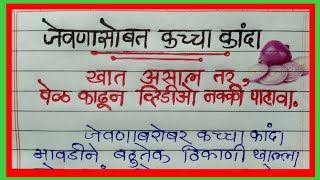 जेवणासोबत कच्चा कांदा
खात असाल तर,
वेळ काढून व्हिडीओ नक्की पाहावा.
जेवणाबरोबर कच्चा कांदा
आवडीने बहुतेक ठिकाणी खाल्ला